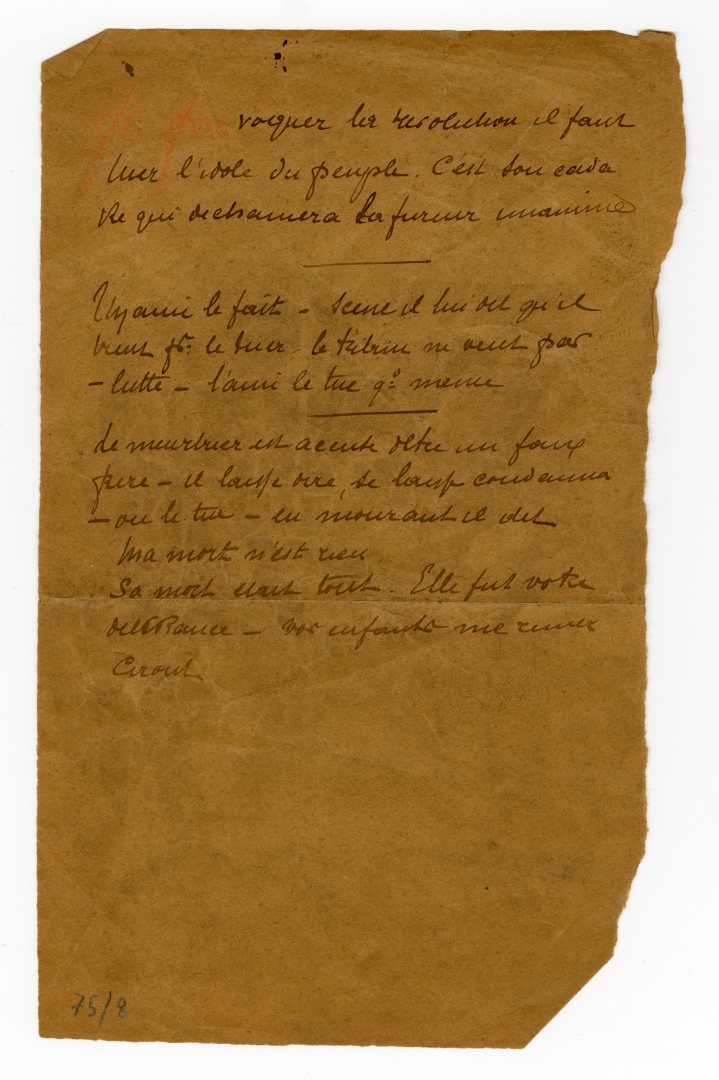 pr pro voquer la revolution il faut
tuer l'idole du peuple. C'est son cada
vre qui dechainera la fureur unanime
Un ami le fait - scene il lui dit qu'il
vient pr. le tuer - le tribun ne veut pas
- lutte - l'ami le tue qd meme
Le meurtrier est accusé d'etre un faux
frere - il laisse dire, se laisse condamna
- on le tue - en mourant il dit
Ma mort n'est rien
Sa mort etait tout. Elle fut votre
delivrance - vos enfants me remer
ciront.
75/8